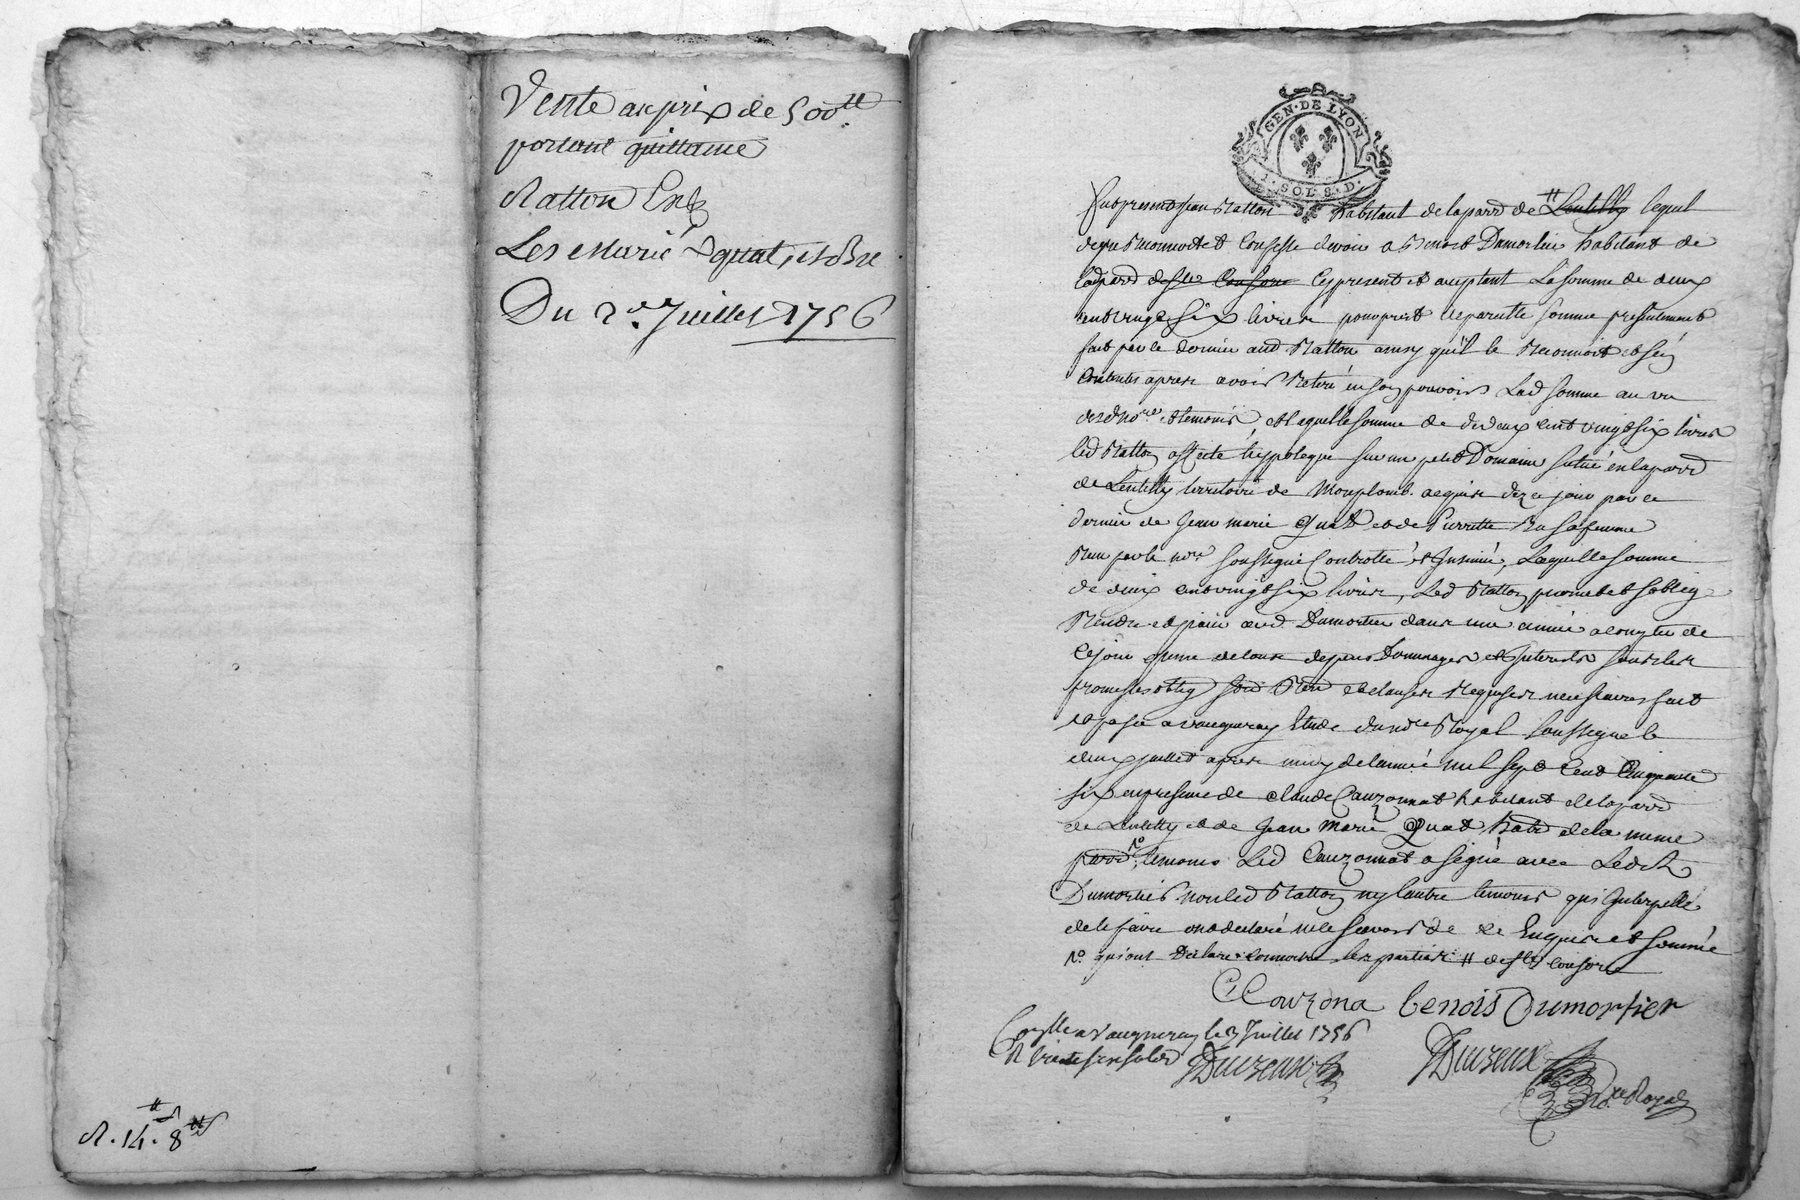 Vente au prix de 500 ₶
portant quittance
Ratton Entre
Les Mariés quat, et Bre
Du 2e. Juillet 1756
R. 14. 8
GEN. DE LYON
1. SOL 8. D.
Fut present Jean Ratton habitant de la parr de Lentilly lequel
de gré reconnoit et confesse devoir a Benoist Dumortier habitant de
lad parr de Ste Consorce cy present et acceptant La somme de deux
cent vingt six livres pour prest de pareille somme presentement
fait par le dernier aud Ratton ainsy qu'il le Reconnoit et sen
contente apres avoir Retiré en son pouvoir Lad somme au vu
desd nore et temoins, et laquelle somme de deux cent vingt six livres
led Ratton affecte hypoteque sur un petit Domaine situé en la parr
de Lentilly territoire de Monplomb acquis dez ce jour par ce
dernier de Jean marie Quat et de Pierrette sa femme
Reçu par le nore soussigné Controllé et Insinué, Laquelle somme
de deux cent vingt six livres, Led Ratton promet et s'oblig
Rendre et paier aud Dumortier dans une année a compter de
ce jour a peine de tous depens Dommages et Interests sous les
promesses oblig soud Ren et clauses Requises necessaires fait
et passé a vaugneray Etude du nore Royal soussigné le
deux juillet apres midy de l'année mil sept Cent Cinquante
six en presence de claude Couzonnat habitant de la parr
de Lentilly et de Jean Marie Quat habt de la meme
parr, temoins Led Couzonnat a signé avec Ledit
Dumortier non led Ratton ny l'autre temoins qui Interpellé
de le faire ont declaré ne le scavoir de ce Enquis et sommé
Ro qui ont Declaré connoitre les parties # de Ste consorce
C Couzona benois Dumortier
Conlle a Vaugneray le 3 Juillet 1756
R trente six sols
Duizeux
Duizeux
No. re Royal